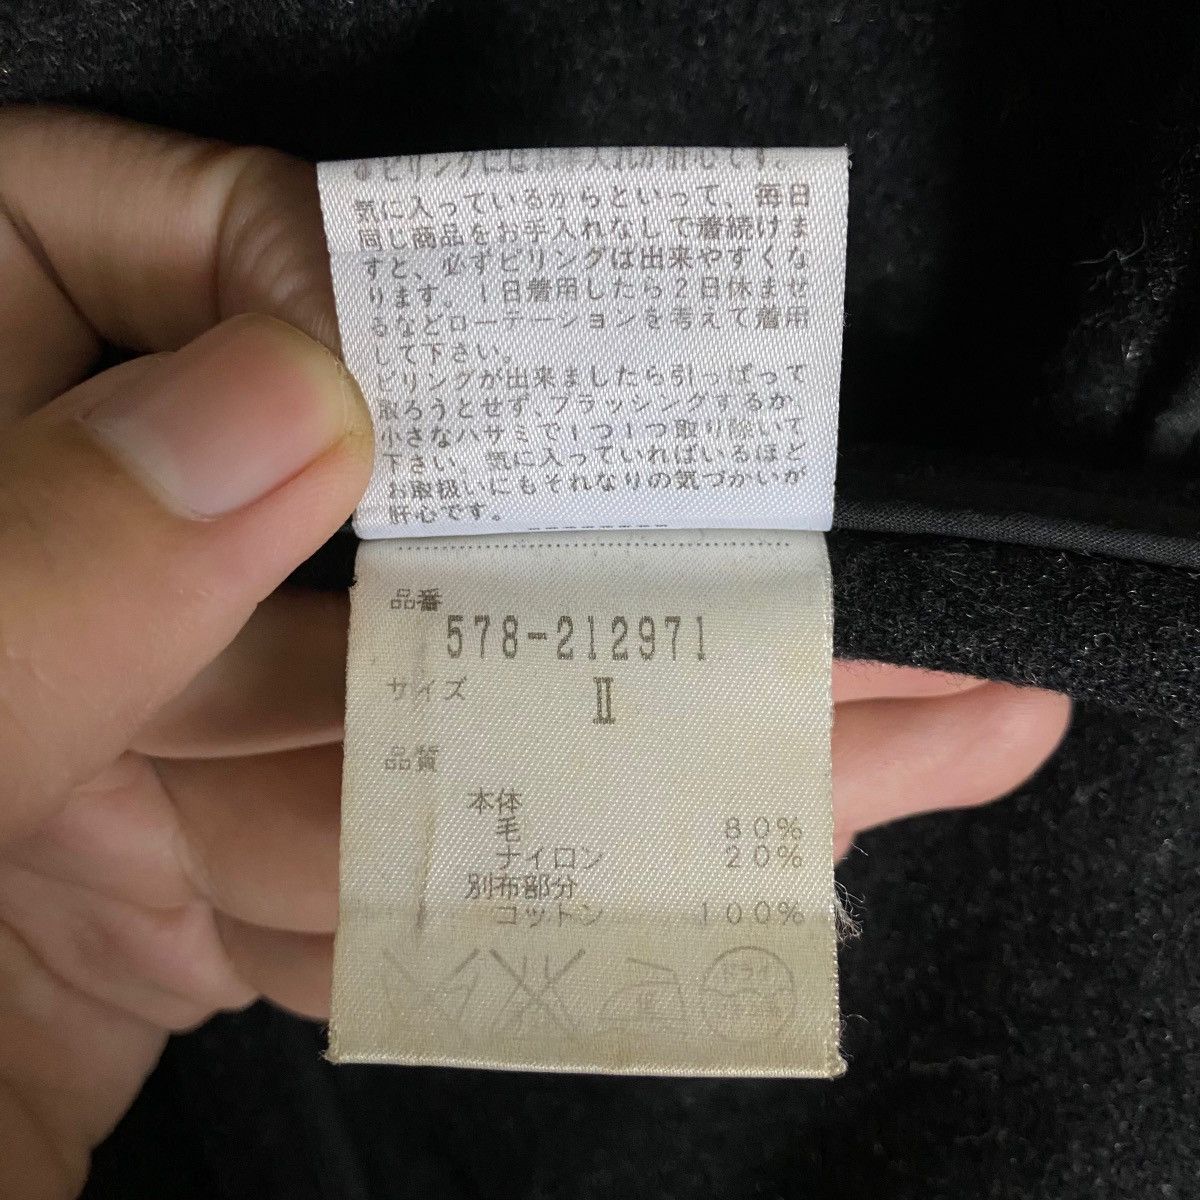 ●ピリングにはお手入れが肝心です。
気に入っているからといって、毎日
同じ商品をお手入れなしで着続けま
すと、必ずピリングは出来やすくな
ります。1日着用したら2日休ませ
るなどローテーションを考えて着用
して下さい。
ピリングが出来ましたら引っぱって
取ろうとせず、ブラッシングするか、
小さなハサミで1つ1つ取り除いて
下さい。気に入っていればいるほど
お取扱いにもそれなりの気づかいが
肝心です。
品番
578-212971
サイズ
II
品質
本体
毛 80%
ナイロン 20%
別布部分
コットン 100%
ドライ